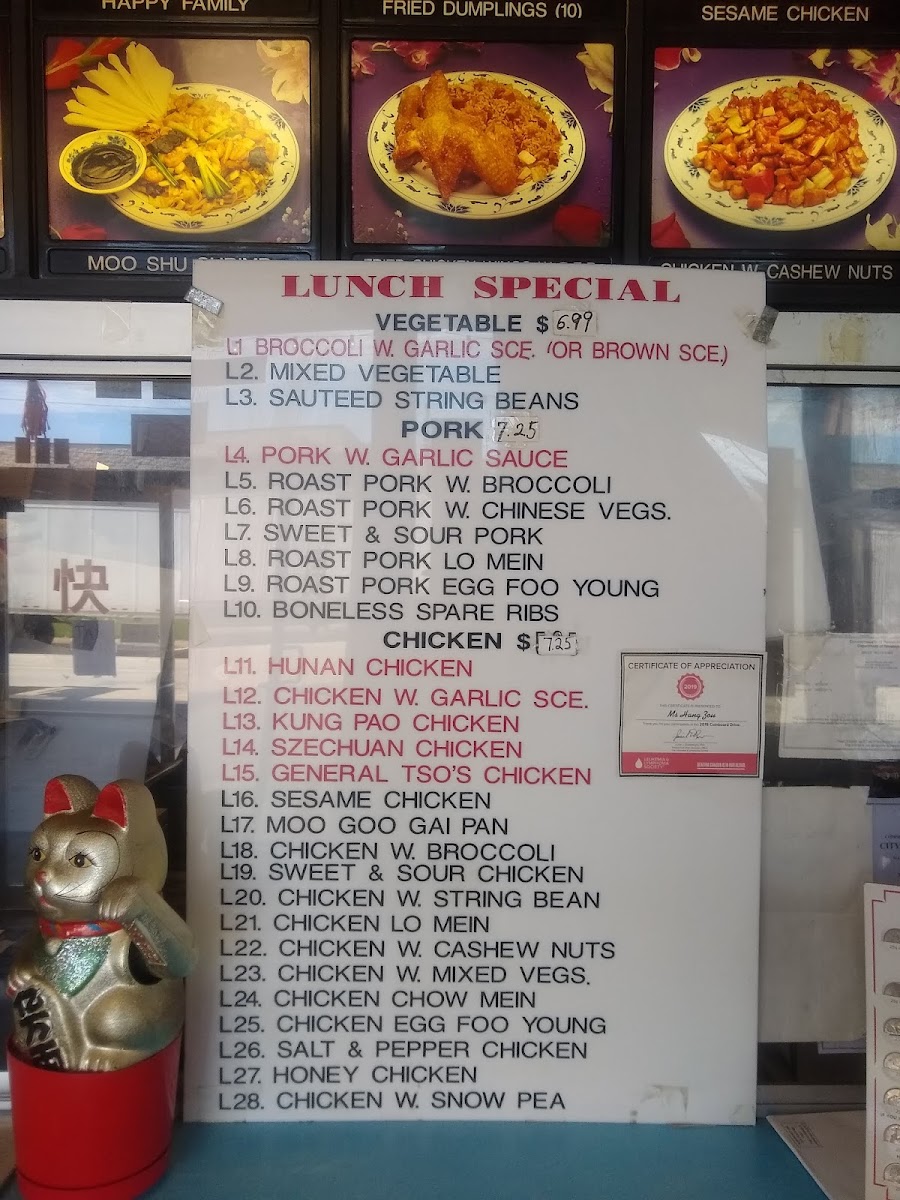 HAPPY FAMILY
FRIED DUMPLINGS (10)
SESAME CHICKEN
MOO SHU SHRIMP
CHICKEN W. CASHEW NUTS
LUNCH SPECIAL
VEGETABLE $ 6.99
L1 BROCCOLI W. GARLIC SCE. (OR BROWN SCE.)
L2. MIXED VEGETABLE
L3. SAUTEED STRING BEANS
PORK 7.25
L4. PORK W. GARLIC SAUCE
L5. ROAST PORK W. BROCCOLI
L6. ROAST PORK W. CHINESE VEGS.
L7. SWEET & SOUR PORK
L8. ROAST PORK LO MEIN
L9. ROAST PORK EGG FOO YOUNG
L10. BONELESS SPARE RIBS
CHICKEN $ 7.25
L11. HUNAN CHICKEN
L12. CHICKEN W. GARLIC SCE.
L13. KUNG PAO CHICKEN
L14. SZECHUAN CHICKEN
L15. GENERAL TSO'S CHICKEN
L16. SESAME CHICKEN
L17. MOO GOO GAI PAN
L18. CHICKEN W. BROCCOLI
L19. SWEET & SOUR CHICKEN
L20. CHICKEN W. STRING BEAN
L21. CHICKEN LO MEIN
L22. CHICKEN W. CASHEW NUTS
L23. CHICKEN W. MIXED VEGS.
L24. CHICKEN CHOW MEIN
L25. CHICKEN EGG FOO YOUNG
L26. SALT & PEPPER CHICKEN
L27. HONEY CHICKEN
L28. CHICKEN W. SNOW PEA
CERTIFICATE OF APPRECIATION
2019
LEUKEMIA &
LYMPHOMA
SOCIETY
快